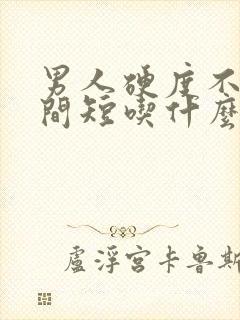 男人硬度不
間短喫什麼
盧浮宮卡魯斯